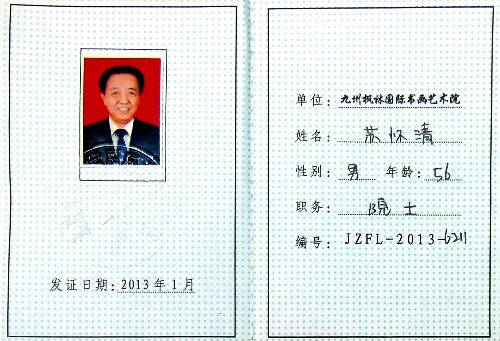 发证日期：2013年1月
单位：九州枫林国际书画艺术院
姓名：苏怀清
性别：男 年龄：56
职务：院士
编号：JZFL-2013-6211